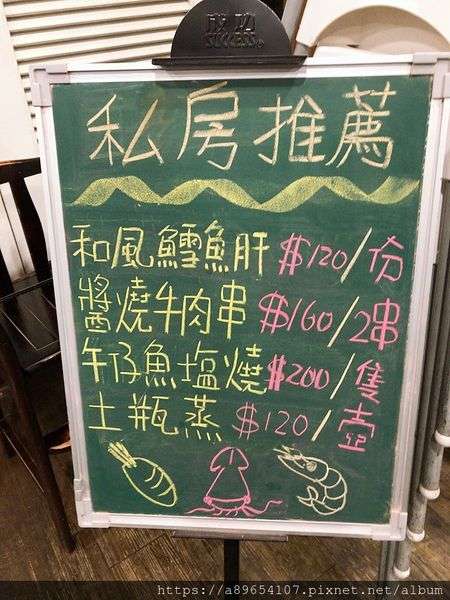 SUCCESS
私房推薦
和風鱈魚肝 $120/份
醬燒牛肉串 $160/2串
午仔魚塩燒 $200/隻
土瓶蒸 $120/壺
https://a89654107.pixnet.net/album